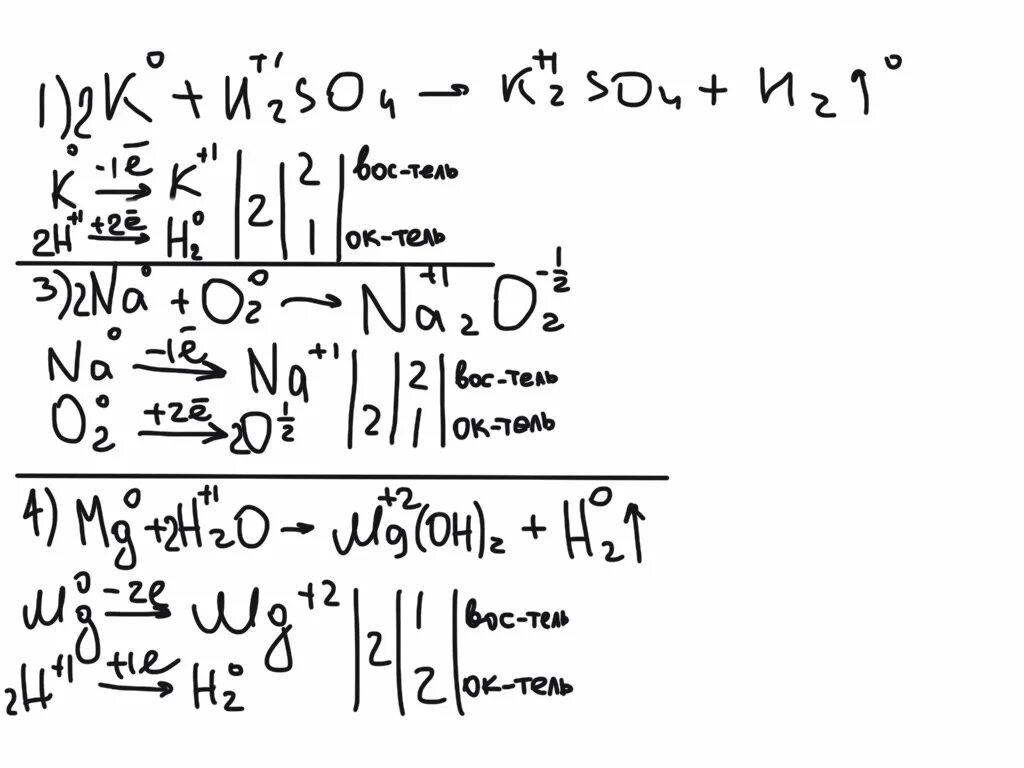 1) 2K⁰ + H₂⁺¹SO₄ → K₂⁺¹SO₄ + H₂↑⁰
K⁰ -1ē → K⁺¹ | | 2 | вос-тель
2H⁺¹ +2ē → H₂⁰ | 2 | 1 | ок-тель
3) 2Na⁰ + O₂⁰ → Na₂⁺¹O₂^-1/2
Na⁰ -1ē → Na⁺¹ | | 2 | вос-тель
O₂⁰ +2ē → 2O^1/2 | 2 | 1 | ок-тель
4) Mg⁰ + 2H₂⁺¹O → Mg⁺²(OH)₂ + H₂⁰↑
Mg⁰ -2e → Mg⁺² | 2 | 1 | вос-тель
2H⁺¹ +1e → H₂⁰ | | 2 | ок-тель